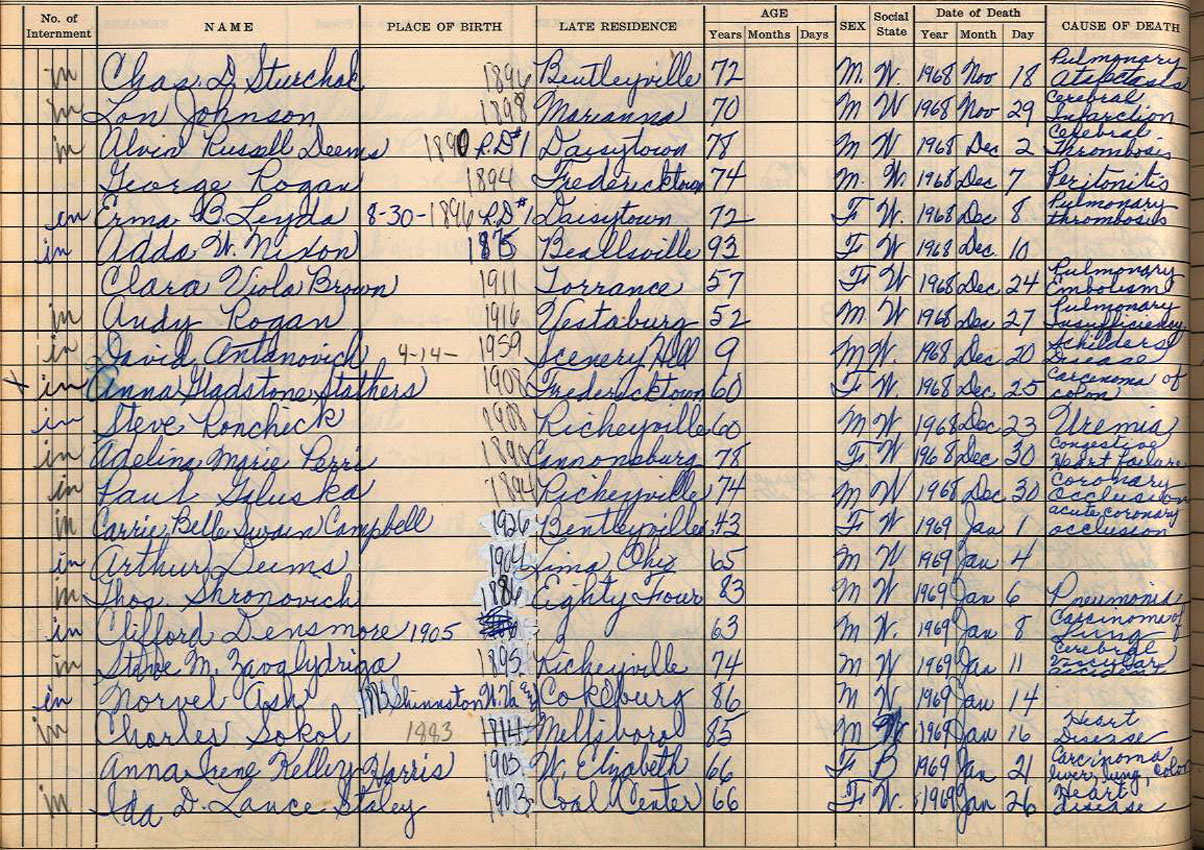 No. of Internment NAME PLACE OF BIRTH LATE RESIDENCE AGE Years Months Days SEX Social State Date of Death Year Month Day CAUSE OF DEATH
in Chas D. Sturchak 1896 Bentleyville 72 M. W. 1968 Nov 18 Pulmonary
in Lon Johnson 1898 Marianna 70 M W 1968 Nov 29 Cerebral Infarction
in Alvin Russell Deems 1890 R.D#1 Daisytown 78 M W. 1968 Dec 2 Cerebral Thrombosis
George Rogan 1894 Fredericktown 74 M. W. 1968 Dec 7 Peritonitis
in Erma B. Leyda 8-30-1896 R.D#1 Daisytown 72 F W. 1968 Dec 8 Pulmonary thrombosis
in Adda W. Nixon 1875 Beallsville 93 F W 1968 Dec. 10
Clara Viola Brown 1911 Torrance 57 F W 1968 Dec 24 Pulmonary Embolism
in Andy Rogan 1916 Vestaburg 52 M W 1968 Dec 27 Pulmonary Insufficiency
in David Antanovich 4-14- 1959 Scenery Hill 9 M W. 1968 Dec 20 Schilders Disease
x in Anna Gladstone Stathers 1908 Fredericktown 60 F W. 1968 Dec 25 Carcenoma of colon
in Steve Roncheck 1908 Richeyville 60 M W 1968 Dec 23 Uremia
in Adelina Marie Perri 1890 Cannonsburg 78 F W. 1968 Dec 30 Congestive Heart failure
in Paul Galuska 1894 Richeyville 74 M W 1968 Dec 30 Coronary Occlusion
in Carrie Belle Swain Campbell 1926 Bentleyville 43 F W. 1969 Jan 1 acute coronary occlusion
in Arthur Deems 1904 Lima Ohio 65 M W 1969 Jan 4
in Thos Shronovich 1886 Eighty Four 83 M W 1969 Jan 6 Pneumonia
in Clifford Densmore 1905 63 M W. 1969 Jan 8 Carcinoma of Lung
in Steve M. 1895 Richeyville 74 M W 1969 Jan 11 Cerebral Vascular accident
in Norvel Ash 1883 Shinnston W.Va Cokeburg 86 M W 1969 Jan 14
in Charles Sokol 1883 Mellsboro 85 M W 1969 Jan 16 Heart Disease
Anna Irene Kelley Harris 1903 W. Elizabeth 66 F B 1969 Jan 21 Carcinoma liver, lung, colon
in Ida D. Lance Staley 1903 Coal Center 66 F W. 1969 Jan 26 Heart disease